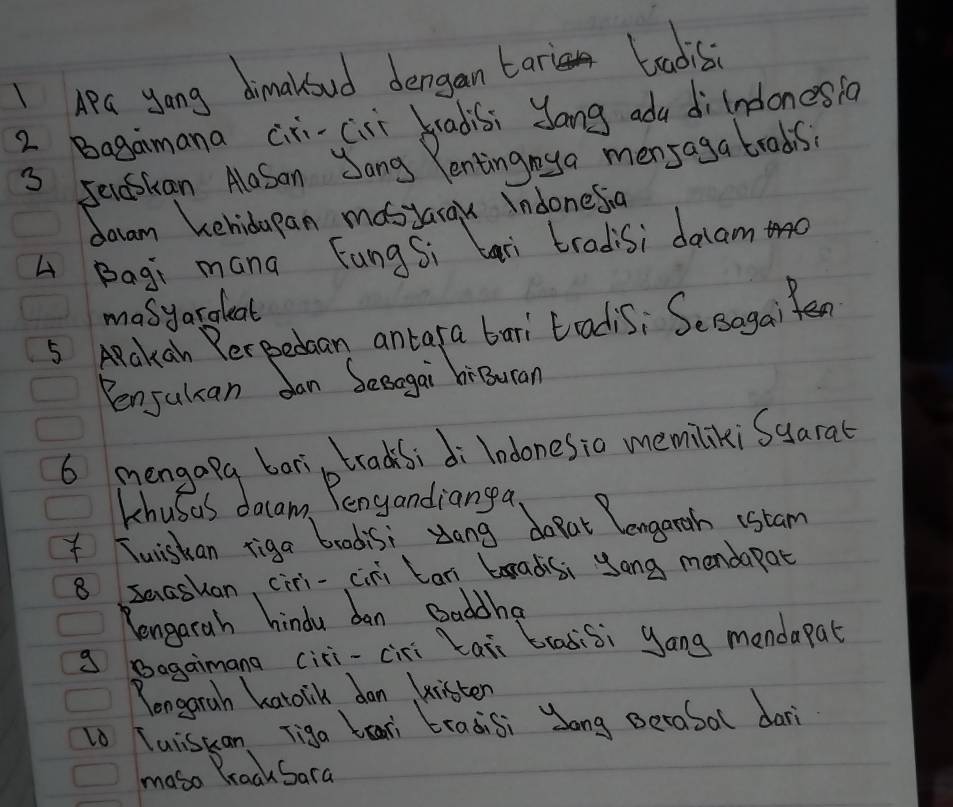 1 APa yang dimaksud dengan tari tradisi
2 Bagaimana ciri-ciri tradisi yang ada di indonesia
3 Jelaskan Alasan yang Pentingnya menjaga tradisi
dalam kehidupan masyarak indonesia
4 Bagi mana Fungsi tari tradisi dalam
masyarakat
5 APakah Perbedaan antara tari tradisi Sebagai Pen
Penjukan dan Sebagai hiburan
6 mengapa tari tradisi di indonesia memiliki Syarat
khusus dalam Penyandianya
7 Tuliskan tiga tradisi yang dapat Pengaruh islam
8 Jelaskan ciri-ciri tari tradisi yang mendapat
Pengaruh hindu dan Buddha
9 Bagaimana ciri-ciri tari tradisi yang mendapat
Pengaruh katolik dan kristen
10 Tuliskan Tiga tari tradisi yang Berasal dari
masa PraakSara